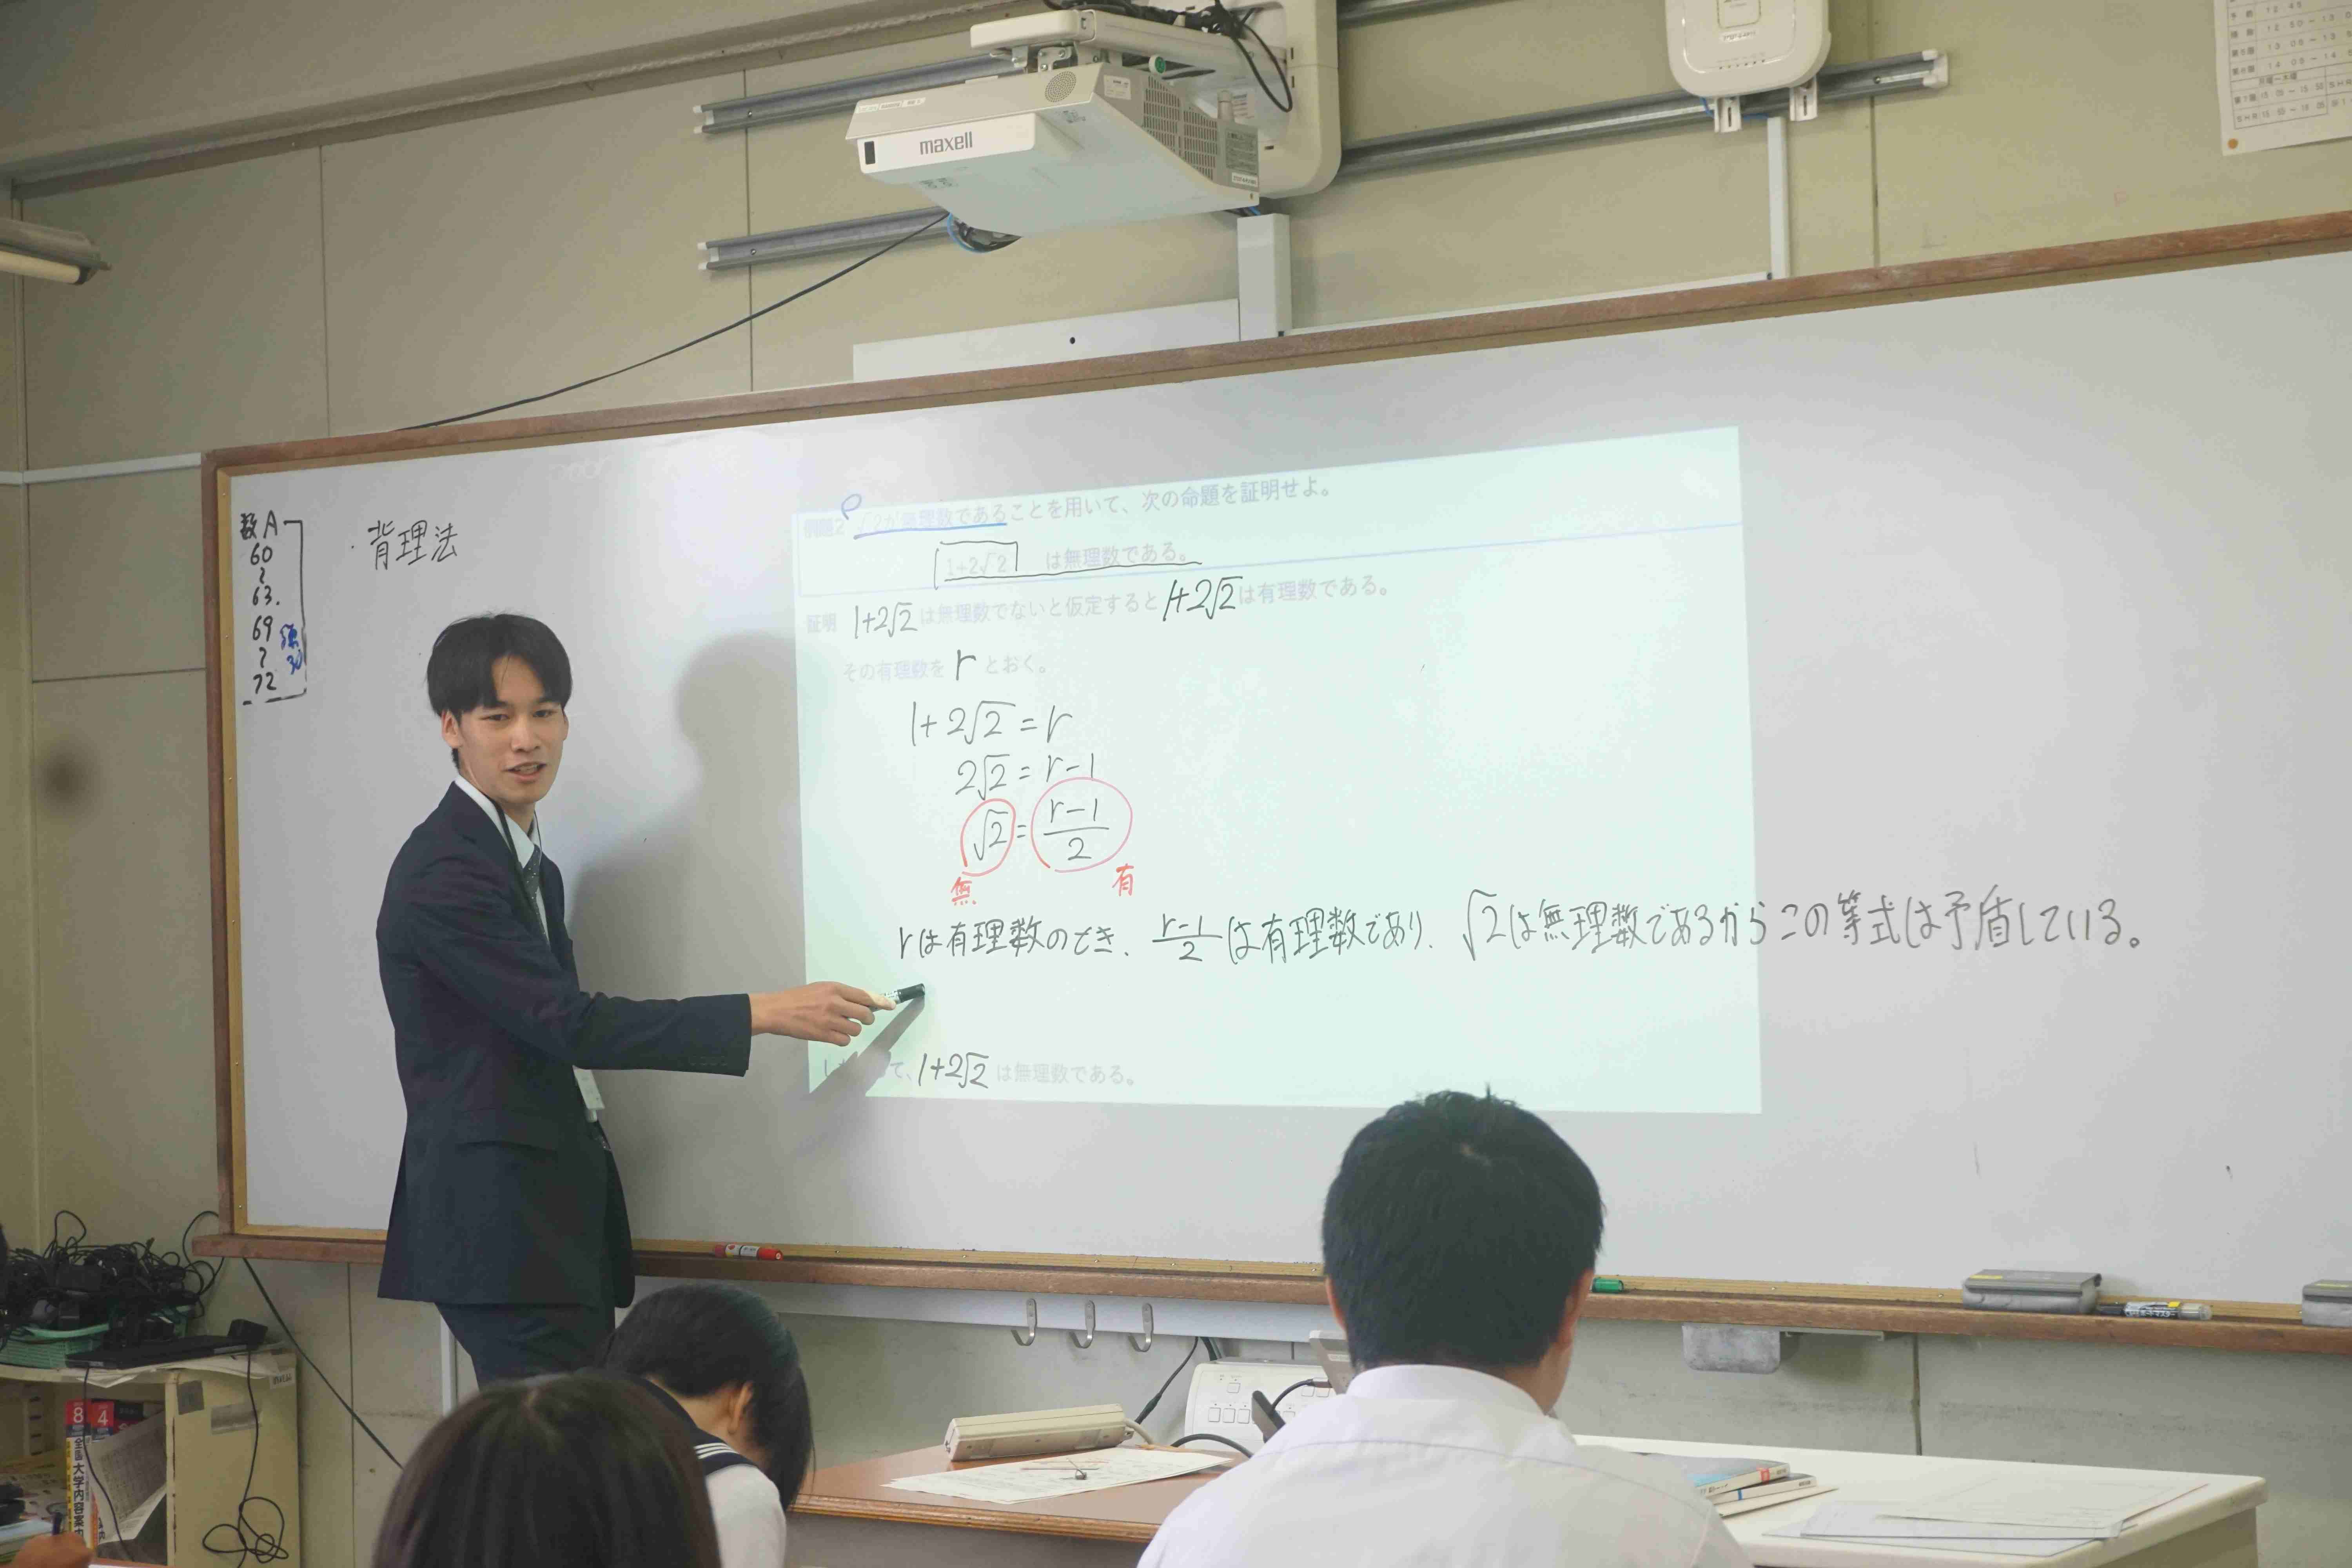 maxell
数A
60
〜
63.
69
〜
72
30
・背理法
例題2 √2が無理数であることを用いて、次の命題を証明せよ。
1+2√2 は無理数である。
証明 1+2√2 は無理数でないと仮定すると 1+2√2 は有理数である。
その有理数を r とおく。
1+2√2=r
2√2=r-1
√2=(r-1)/2
無 有
rは有理数のとき、(r-1)/2 は有理数であり、√2は無理数であるからこの等式は矛盾している。
て、1+2√2 は無理数である。
8 4
全国大学内容案内